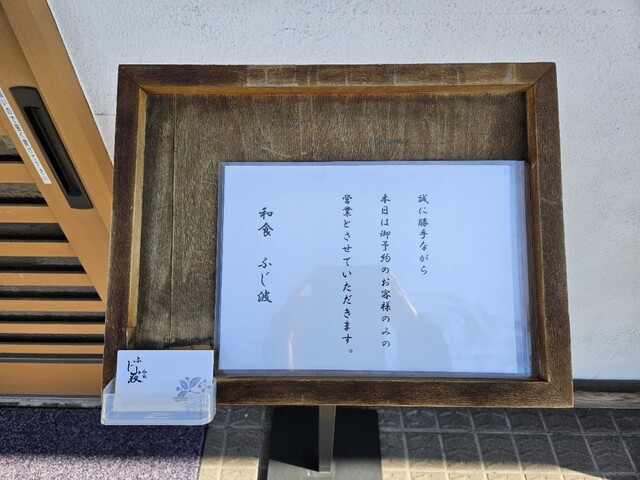 誠に勝手ながら
本日は御予約のお客様のみの
営業とさせていただきます。
和食 ふじ波
ふじ波